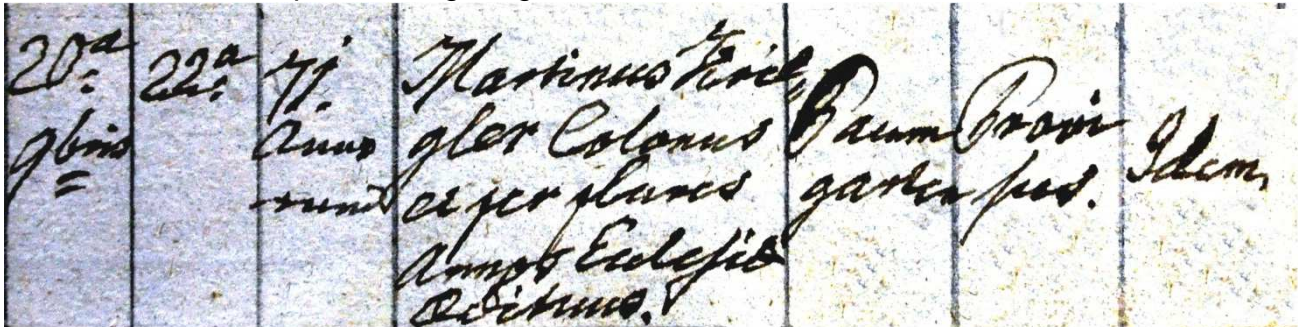 20ª
9bris
22ª
71
Anno
rum
Martinus
gler Colonus
et per plures
Annos Eclesiae
Aedituus.
Baum
garten
Provi
sus.
Idem